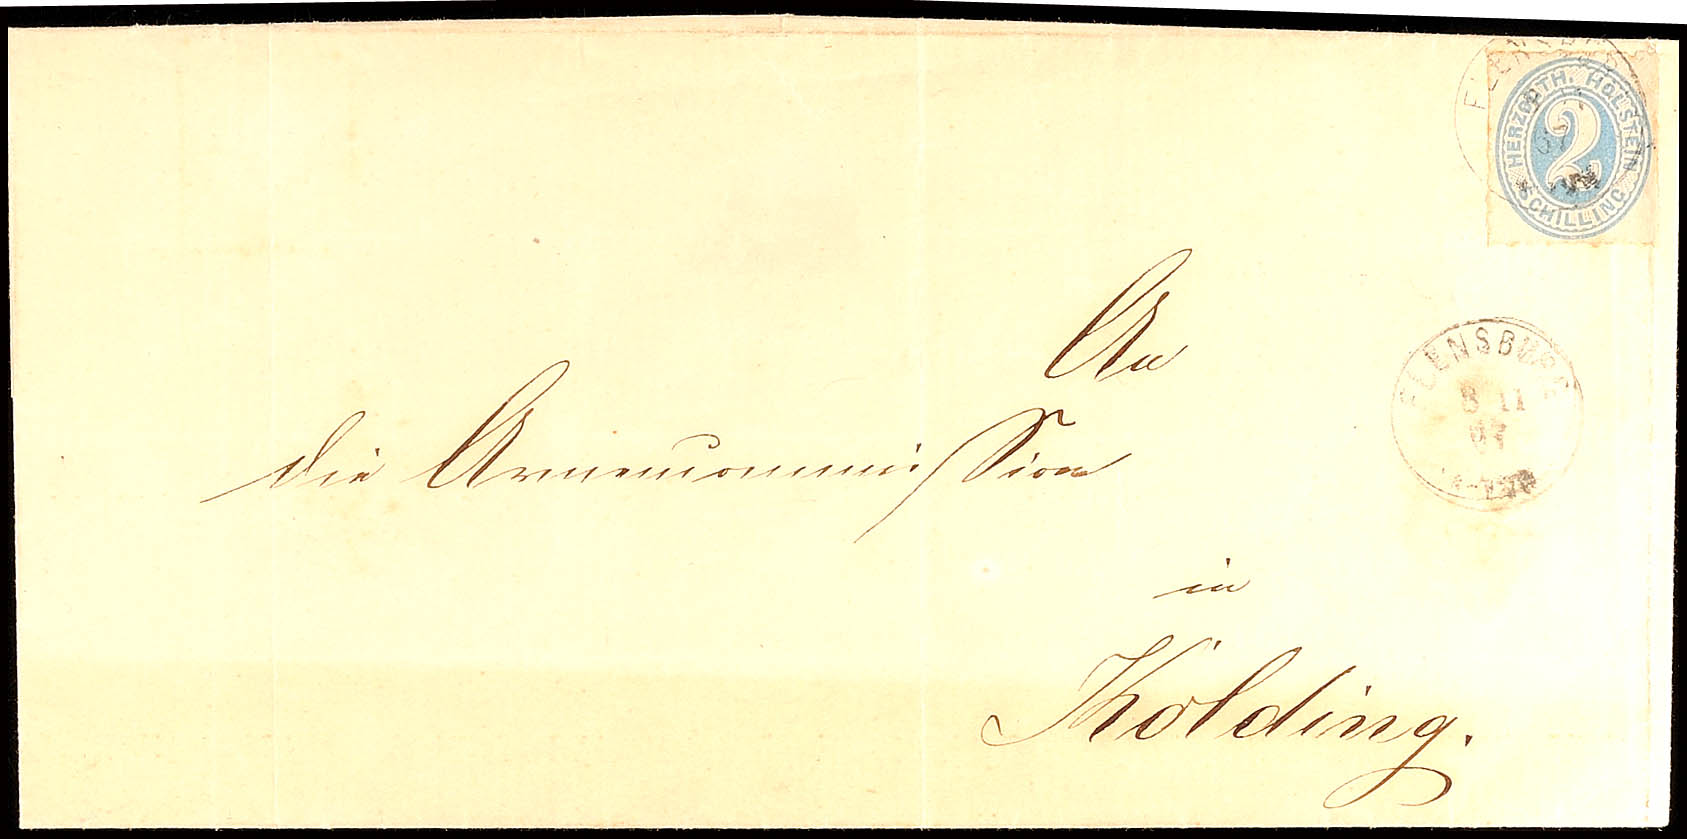 FLENSBURG
HERZOGTH. HOLSTEIN
2
SCHILLING
An
die Armencommission
in
Kolding.
FLENSBURG
8 11
67